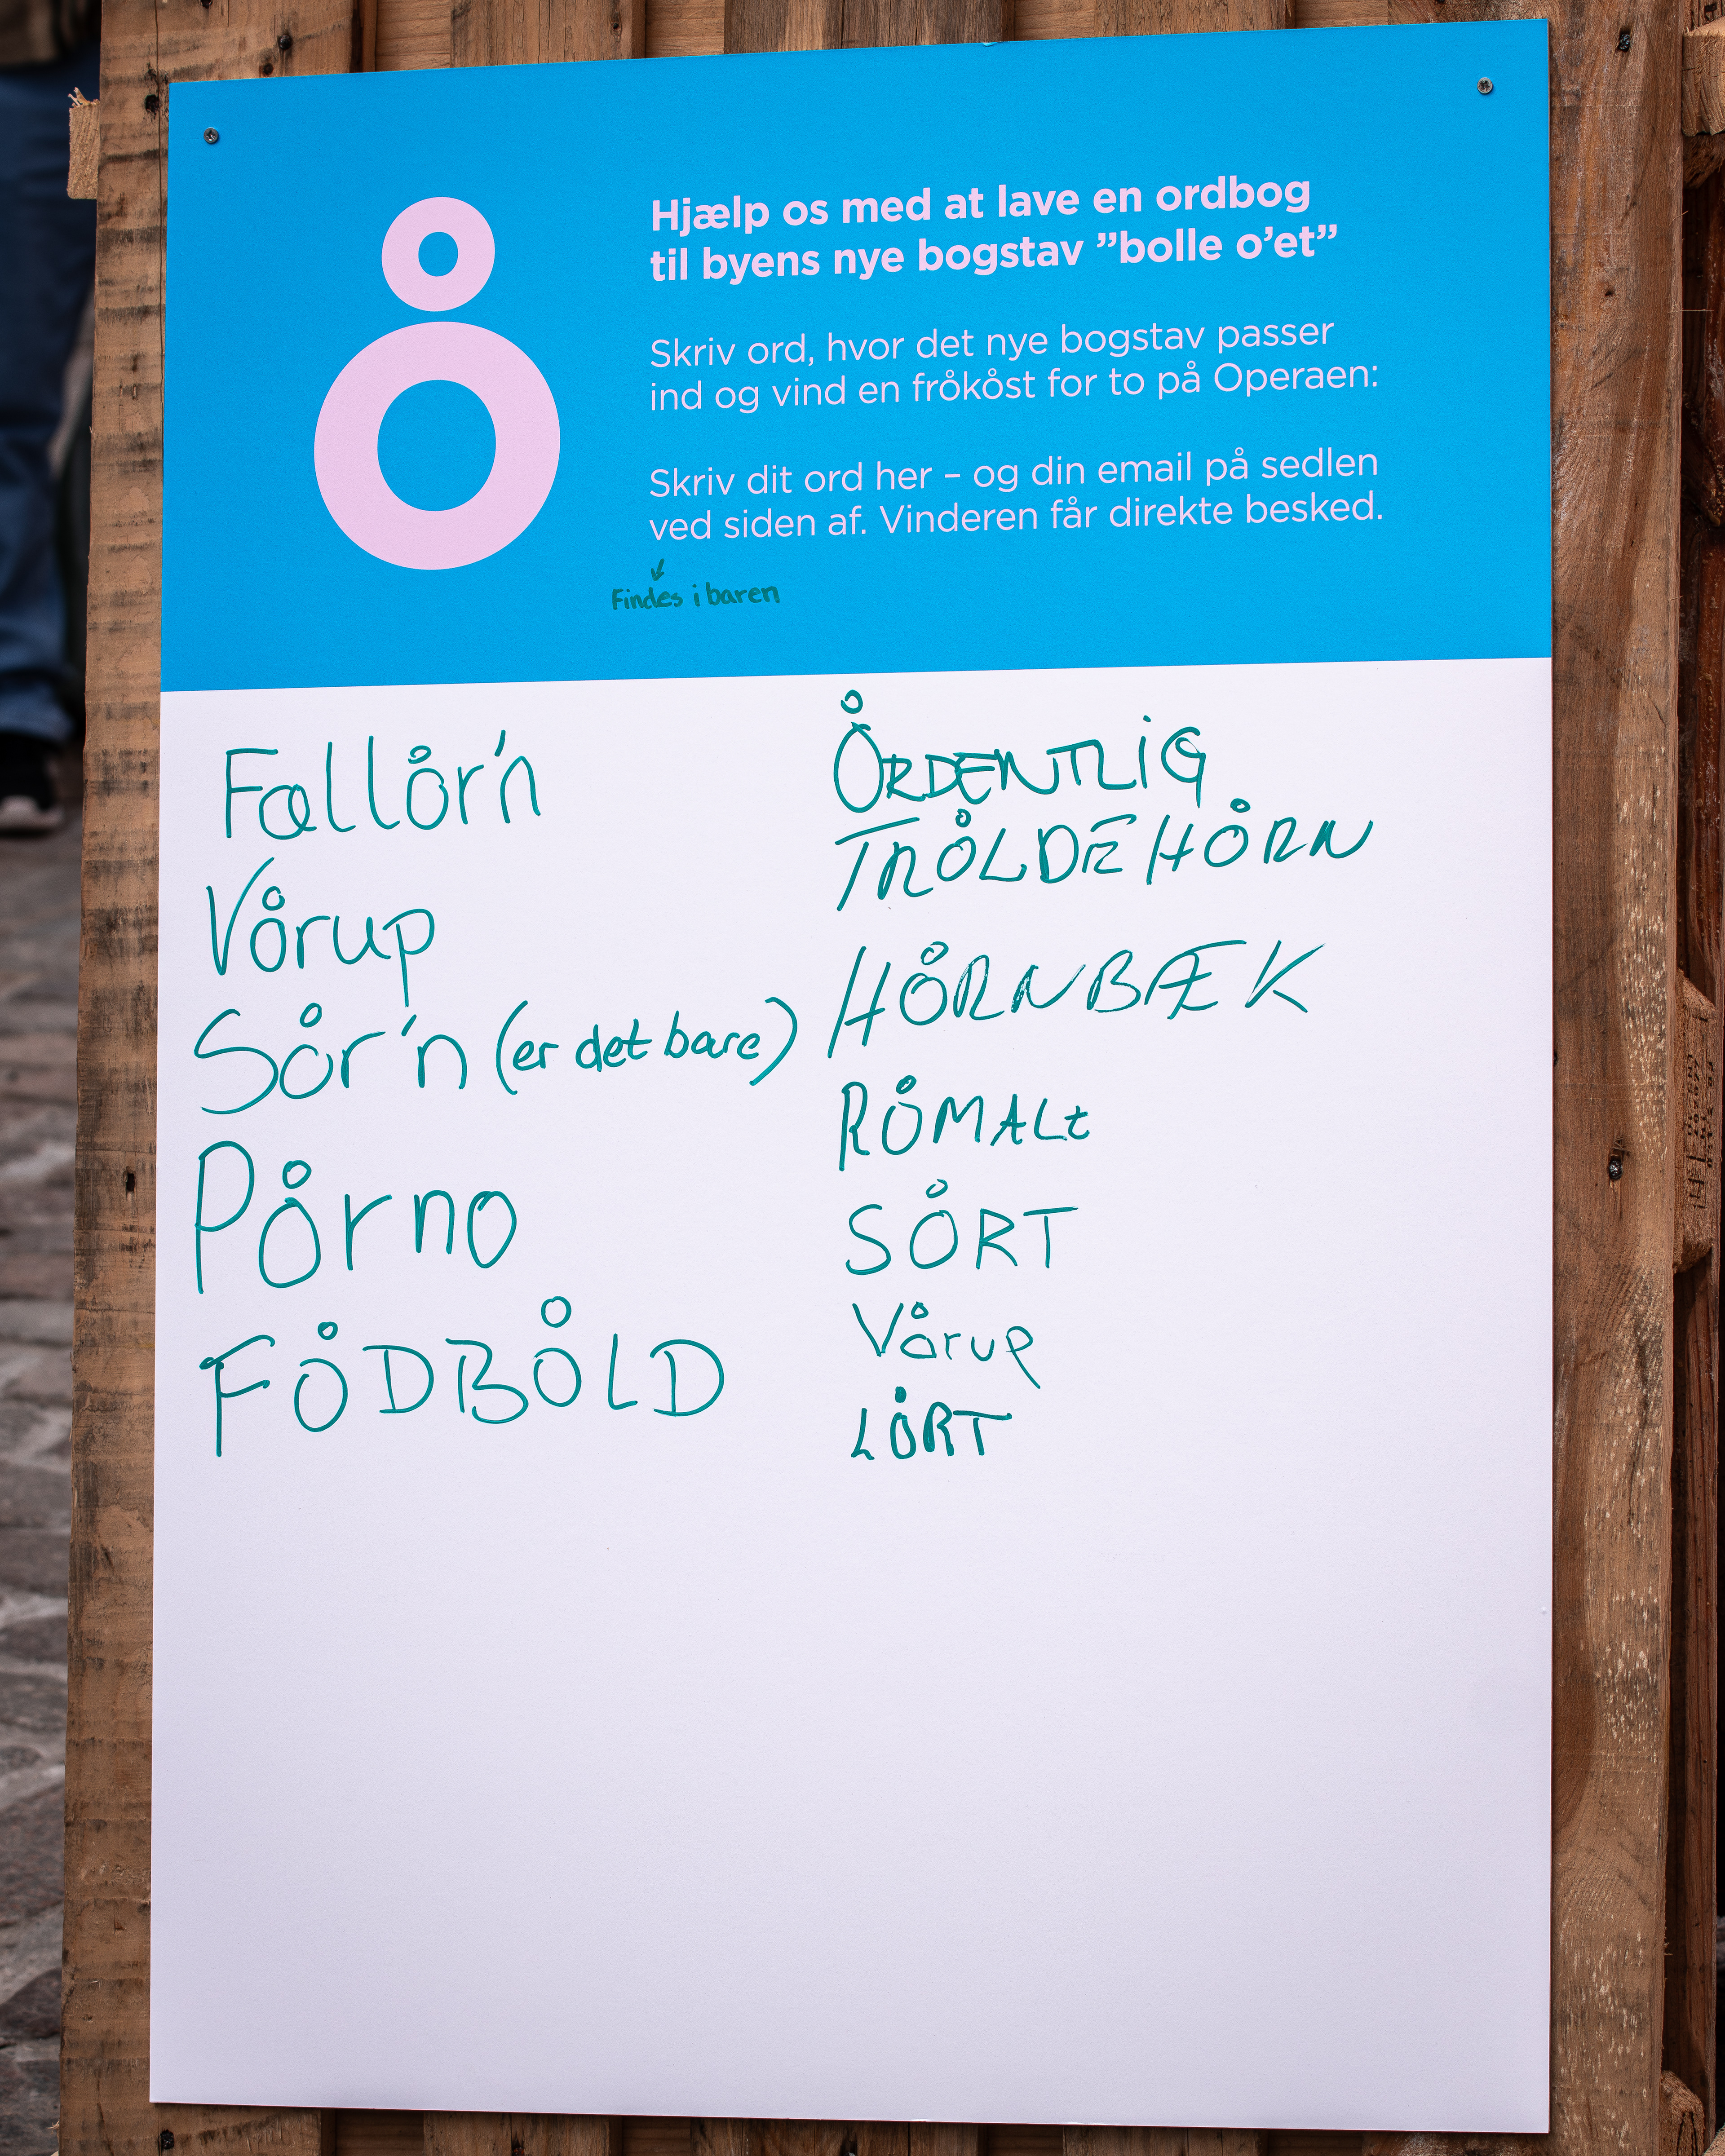 o̊
Hjælp os med at lave en ordbog
til byens nye bogstav ”bolle o’et”
Skriv ord, hvor det nye bogstav passer
ind og vind en fro̊ko̊st for to på Operaen:
Skriv dit ord her – og din email på sedlen
ved siden af. Vinderen får direkte besked.
↓
Findes i baren
Fallo̊r'n
Vo̊rup
So̊r'n (er det bare)
Po̊rno
FO̊DBO̊LD
O̊RDENTLiG
TRO̊LDEHO̊RN
HO̊RNBÆK
RO̊MALt
SO̊RT
Vo̊rup
LO̊RT